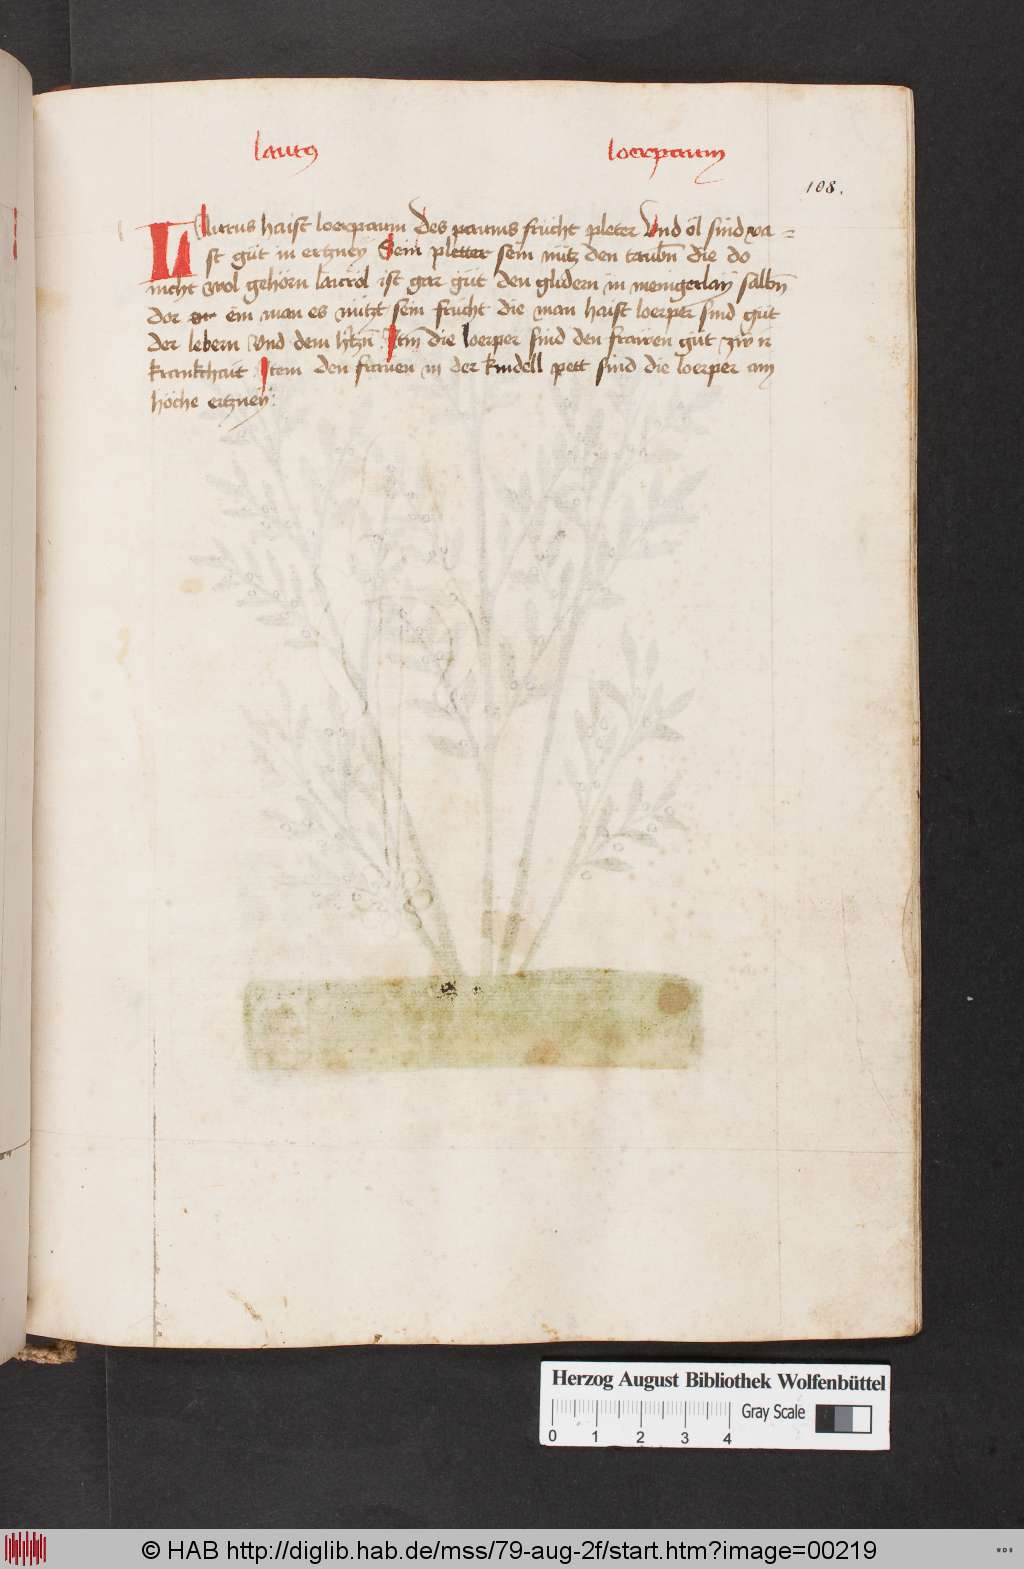 laurus loerpaum
108.
Laurus haist loerpaum Des paums frücht pleter Vnd öl sind va=
st güt in ertzneÿ Sein pletter sein nütz den taubñ die do
nicht wol gehörn lauröl ist gar güt den glidern in menigerlaÿ salbñ
dor ein man es nützt sein frücht die man haist loerper sind güt
der lebern Vnd dem h'tzñ Itm̃ die loerper sind den frawen güt zw ir
kranckhait Item den frauen in der kindell pett sind die loerper ain
höche ertzneÿ:
Herzog August Bibliothek Wolfenbüttel
Gray Scale
0 1 2 3 4
© HAB http://diglib.hab.de/mss/79-aug-2f/start.htm?image=00219